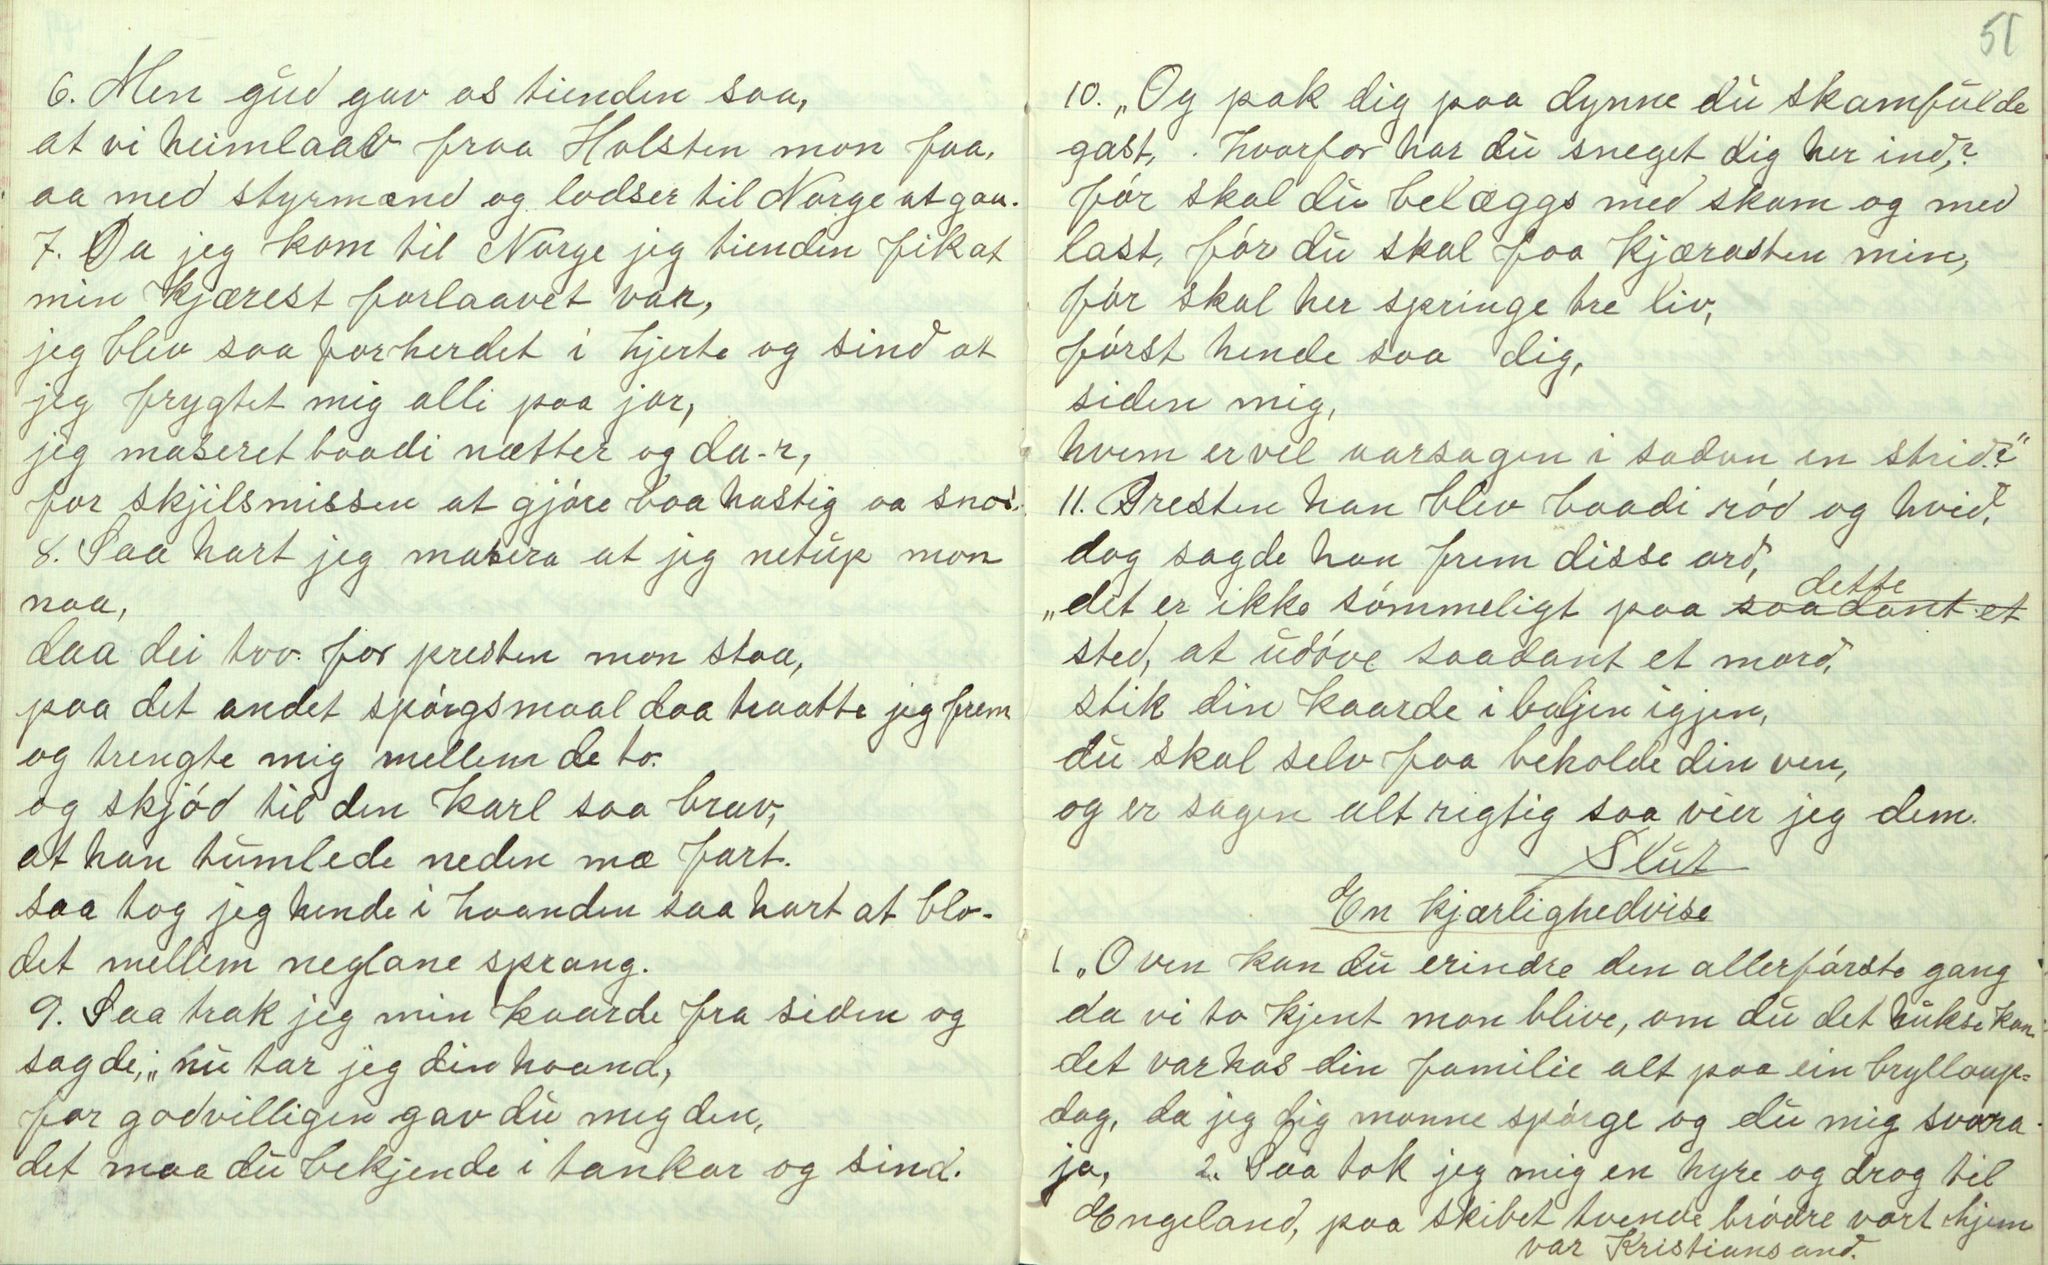 6. Men gud gav os tienden saa,
at vi heimlaav fraa Holsten mon faa,
aa med styrmænd og lodser til Norge at gaa.
7. Da jeg kom til Norge jeg tienden fik at
min kjærest forlaavet var,
jeg blev saa forherdet i hjerte og sind at
jeg frygtet mig alli paa jor,
jeg maseret baadi nætter og da-r,
for skjilsmissen at gjöre baa hastig aa snar.
8. Saa hart jeg masera at jeg netup mon
naa,
daa dei tvo for presten mon staa,
paa det andet spörgsmaal daa traatte jeg frem
og trengte mig mellem de to.
og skjöd til den karl saa brav,
at han tumlede neden mæ fart.
saa tog jeg hende i haanden saa hart at blo-
det mellem neglane sprang.
9. Saa trak jeg min kaarde fra siden og
sagde, „nu tar jeg din haand,
for godvilligen gav du meg den,
det maa du bekjende i tankar og sind.
51
10. „Og pak dig paa dynne du skamfulde
gast, hvorfor har du sneget dig her ind,?
för skal du belæggs med skam og med
last, för du skal faa kjærasten min,
för skal her springe tre liv,
först hende saa dig,
siden mig,
hvem er vel aarsagen i sadan en strid.?"
11. Presten han blev baadi röd og hvid,
dog sagde han frem disse ord,
dette
„det er ikke sömmeligt paa saadant et
sted, at udöve saadant et mord,
stik din kaarde i baljen igjen,
du skal selv faa beholde din ven,
og er sagen alt rigtig saa vier jeg dem.
Slut
En kjærlighedvise
1. „O ven kan du erindre den allerförste gang
da vi to kjent mon blive, om du det hukse kan
det var hos din familie alt paa ein bryllaup-
dag, da jeg dig monne spörge og du mig svara
ja, 2. Saa tok jeg mig en hyre og drog til
Engeland, paa skibet tvende brödre vort hjem
var Kristiansand.